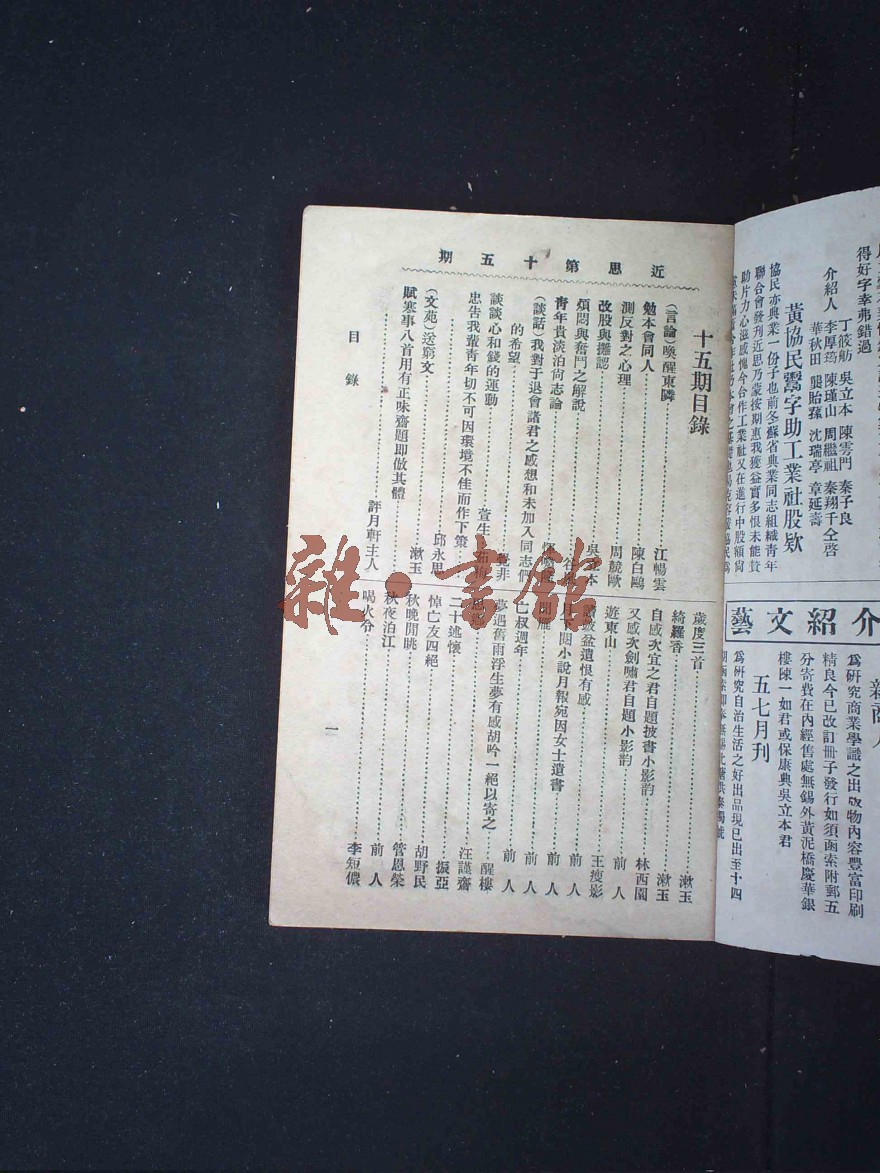 得好字幸弗錯過
介紹人
丁筱舫 吳立本 陳雲門 秦子良
李厚筠 陳瑾山 周繼祖 秦翔千 仝啓
華秋田 龔貽蓀 沈瑞亭 章延壽
黃協民鬻字助工業社股欵
協民亦典業一份子也前冬蘇省典業同志組織青年
聯合會發刊近思乃蒙按期惠我獲益實多恨未能賛
助片力心滋感愧今合作工業社又在進行中股額尙
介紹文藝
爲硏究商業學識之出版物內容豐富印刷
精良今已改訂冊子發行如須函索附郵五
分寄費在內經售處無錫外黃泥橋慶華銀
樓陳一如君或保康典吳立本君
五七月刊
爲硏究自治生活之好出品現已出至十四
近思第十五期
十五期目錄
(言論)喚醒東隣 江暢雲
勉本會同人 陳白鷗
測反對之心理 周競歐
改股與攤認
煩悶與奮鬥之解說
靑年貴淡泊尙志論
(談話)我對于退會諸君之感想和未加入同志們
的希望
談談心和錢的運動 萱生
忠告我輩靑年切不可因環境不佳而作下策 邱永思
(文苑)送窮文 漱玉
賦寒事八首用有正味齋題即倣其體 評月軒主人
歲度三首 漱玉
綺羅香 漱玉
自感次宜之君自題披書小影韵 林西園
又感次劍嘯君自題小影韵 前人
遊東山 王瘦影
破盆遺恨有感 前人
閱小說月報宛因女士遺書 前人
前人
亡叔週年 前人
夢遇舊雨浮生夢有感胡吟一絕以寄之 醒樓
汪謹齋
二十述懷 振亞
悼亡友四絕 胡野民
秋晚閒眺 管恩榮
秋夜泊江 前人
喝火令 李短儂
目錄
一
雜·書館